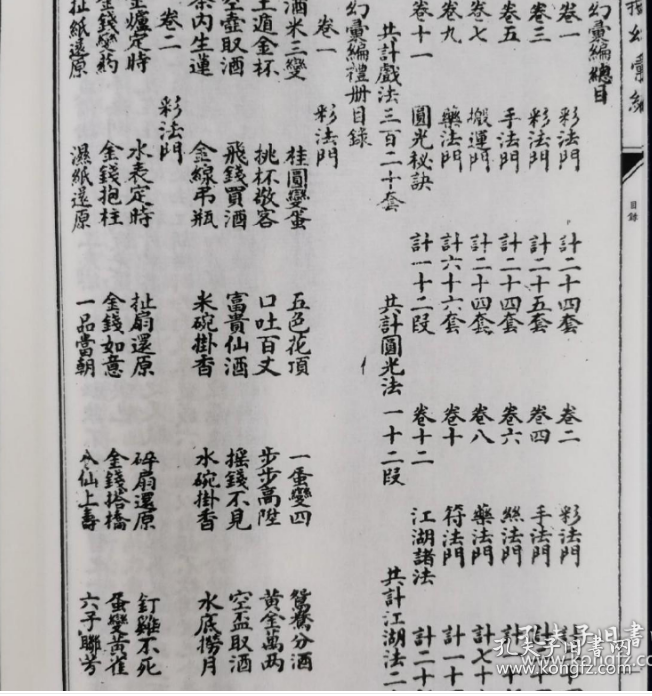 幻彙編
目錄
幻彙編總目
卷一 彩法門 計二十四套 卷二 彩法門
卷三 彩法門 計二十五套 卷四 手法門
卷五 手法門 計二十四套 卷六 絲法門
卷七 搬運門 計二十四套 卷八 藥法門 計七十
卷九 藥法門 計六十六套 卷十 符法門 計一十
卷十一 圓光秘訣 計一十二段 卷十二 江湖諸法 計二十
共計戲法三百二十套 共計圓光法一十二段 共計江湖法二
幻彙編禮册目錄
卷一 彩法門
酒米三變 桂圓變蛋 五色花頂 一蛋變四 鴛鴦分酒
土遁金杯 挑杯敬客 口吐百丈 步步高陞 黃金萬兩
空壺取酒 飛錢買酒 富貴仙酒 搖錢不見 空盃取酒
茶內生蓮 金線吊瓶 米碗掛香 水碗掛香 水底撈月
卷二 彩法門
金爐定時 水表定時 扯扇還原 碎扇還原 釘雞不死
金錢變 金錢抱柱 金錢如意 金錢搭橋 蛋變黃雀
扯紙還原 濕紙還原 一品當朝 八仙上壽 六子聯芳
孔夫子旧書网